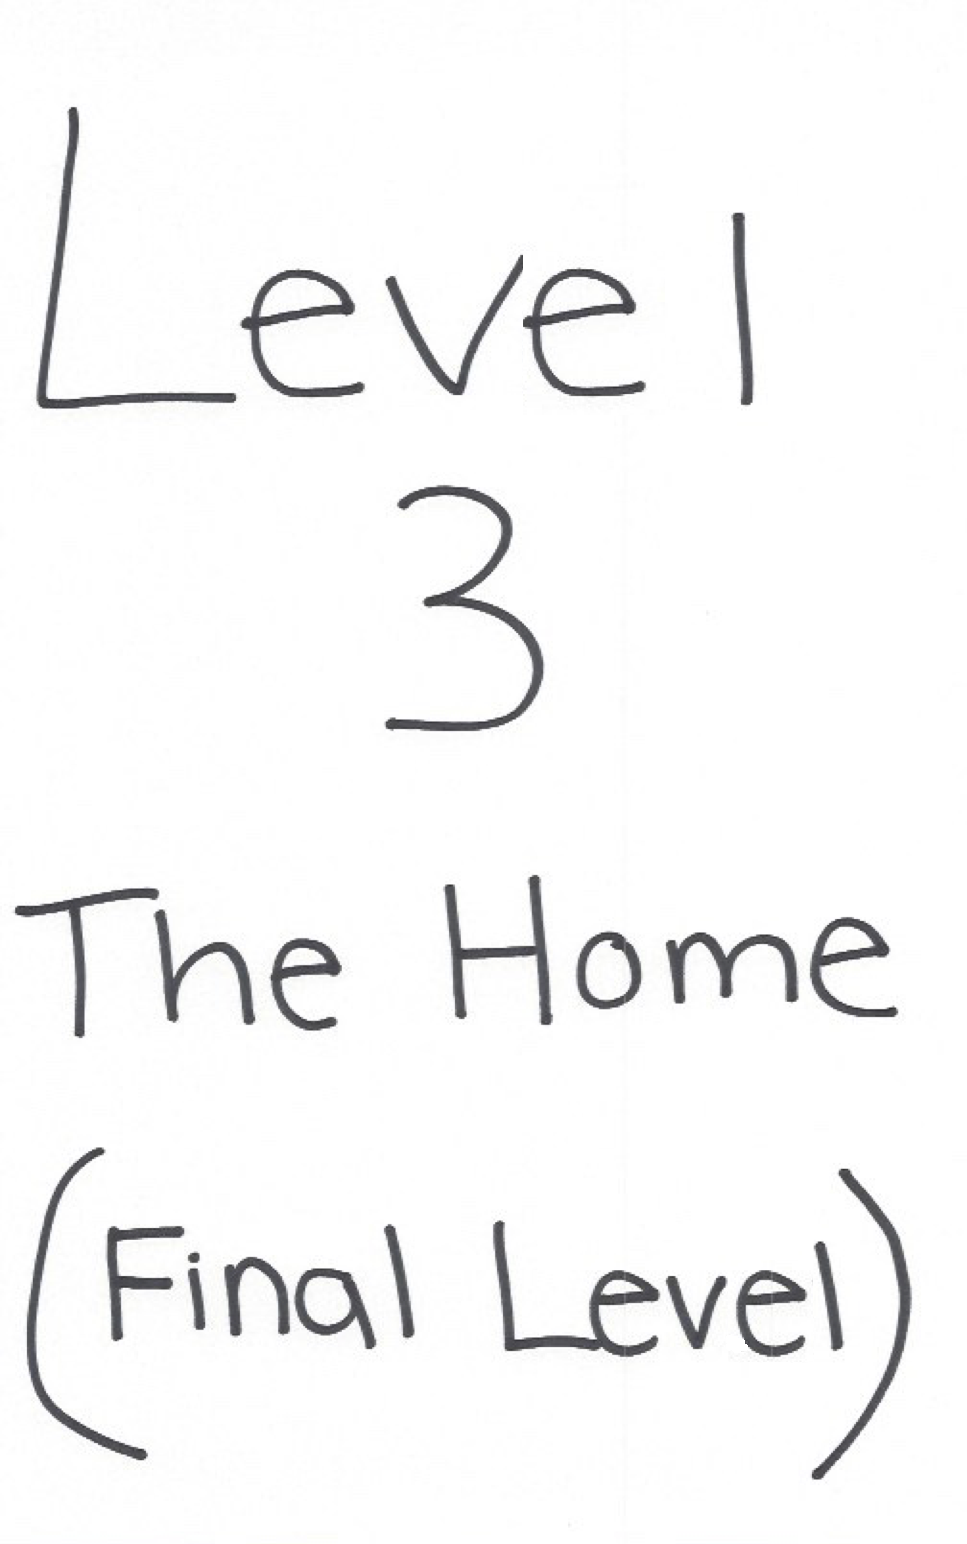 Level
3
The Home
(Final Level)